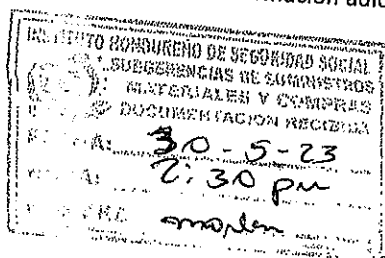 INSTITUTO HONDUREÑO DE SEGURIDAD SOCIAL
SUBGERENCIAS DE SUMINISTROS
MATERIALES Y COMPRAS
DOCUMENTACION RECIBIDA
30-5-23
2:30 pm